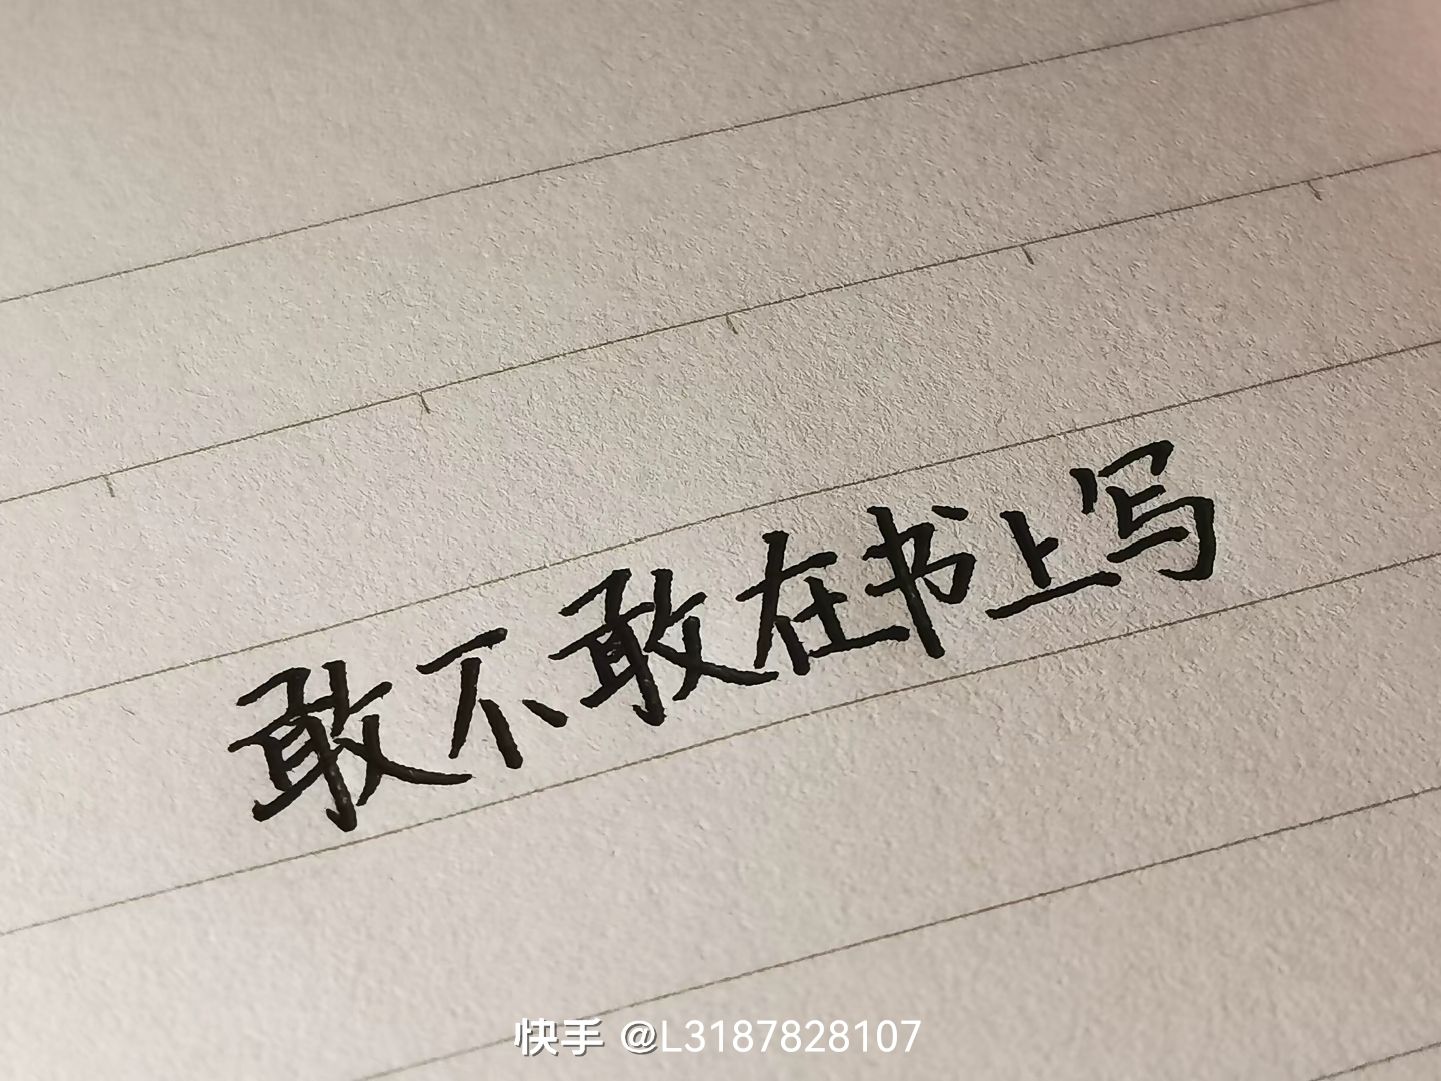 敢不敢在书上写
快手 @L3187828107